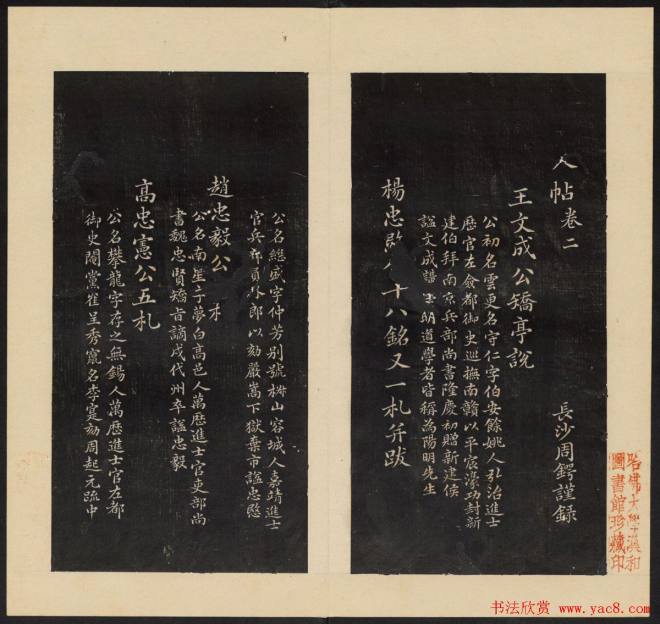 人帖卷二
長沙周鍔謹録
王文成公矯亭說
公初名雲更名守仁字伯安餘姚人弘治進士
歷官左僉都御史巡撫南贛以平宸濠功封新
建伯拜南京兵部尚書隆慶初贈新建侯
謚文成講明道學者皆稱為陽明先生
楊忠愍十八銘又一札并跋
公名繼盛字仲芳别號椒山容城人嘉靖進士
官兵部員外郎以劾嚴嵩下獄棄市謚忠愍
趙忠毅公札
公名南星字夢白高邑人萬歷進士官吏部尚
書魏忠賢矯旨謫戍代州卒謚忠毅
高忠憲公五札
公名攀龍字存之無錫人萬歷進士官左都
御史閹黨崔呈秀竄名李寔劾周起元疏中
哈佛大學漢和
圖書館珍藏印
书法欣赏 www.yac8.com